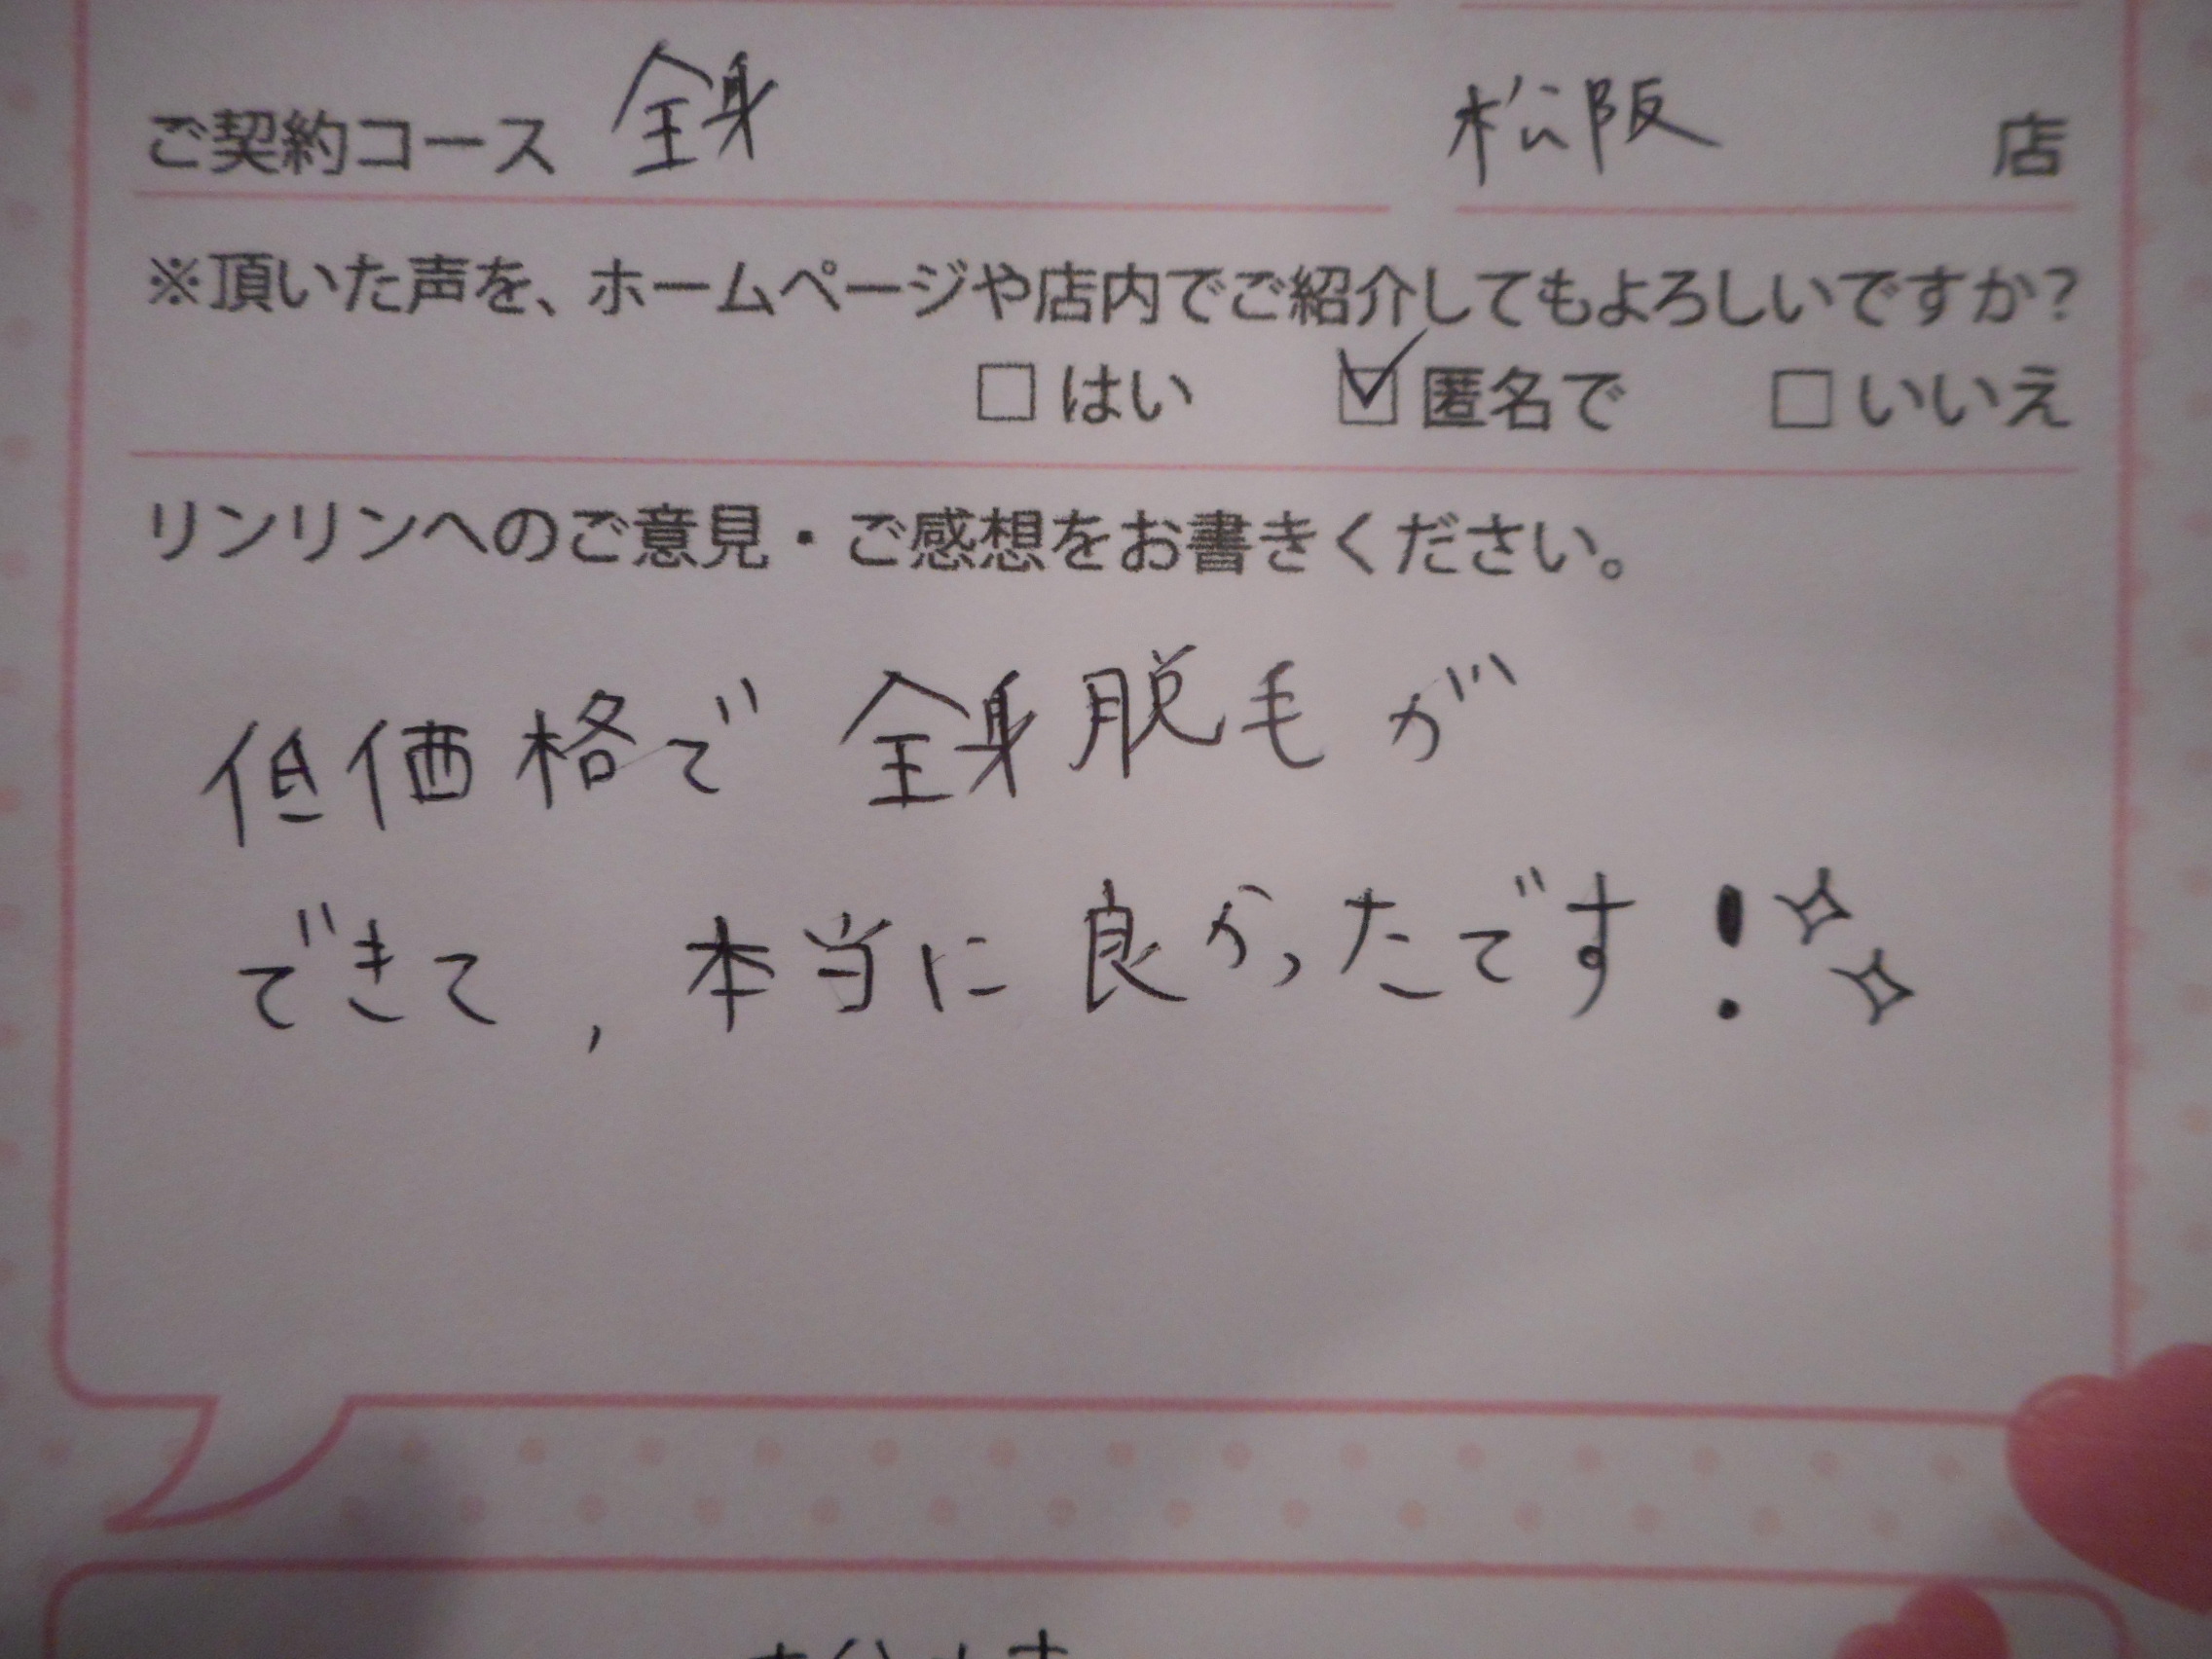 ご契約コース 全身 松阪 店
※頂いた声を、ホームページや店内でご紹介してもよろしいですか?
□ はい ☑ 匿名で □ いいえ
リンリンへのご意見・ご感想をお書きください。
低価格で 全身脱毛が
できて, 本当に良かったです!